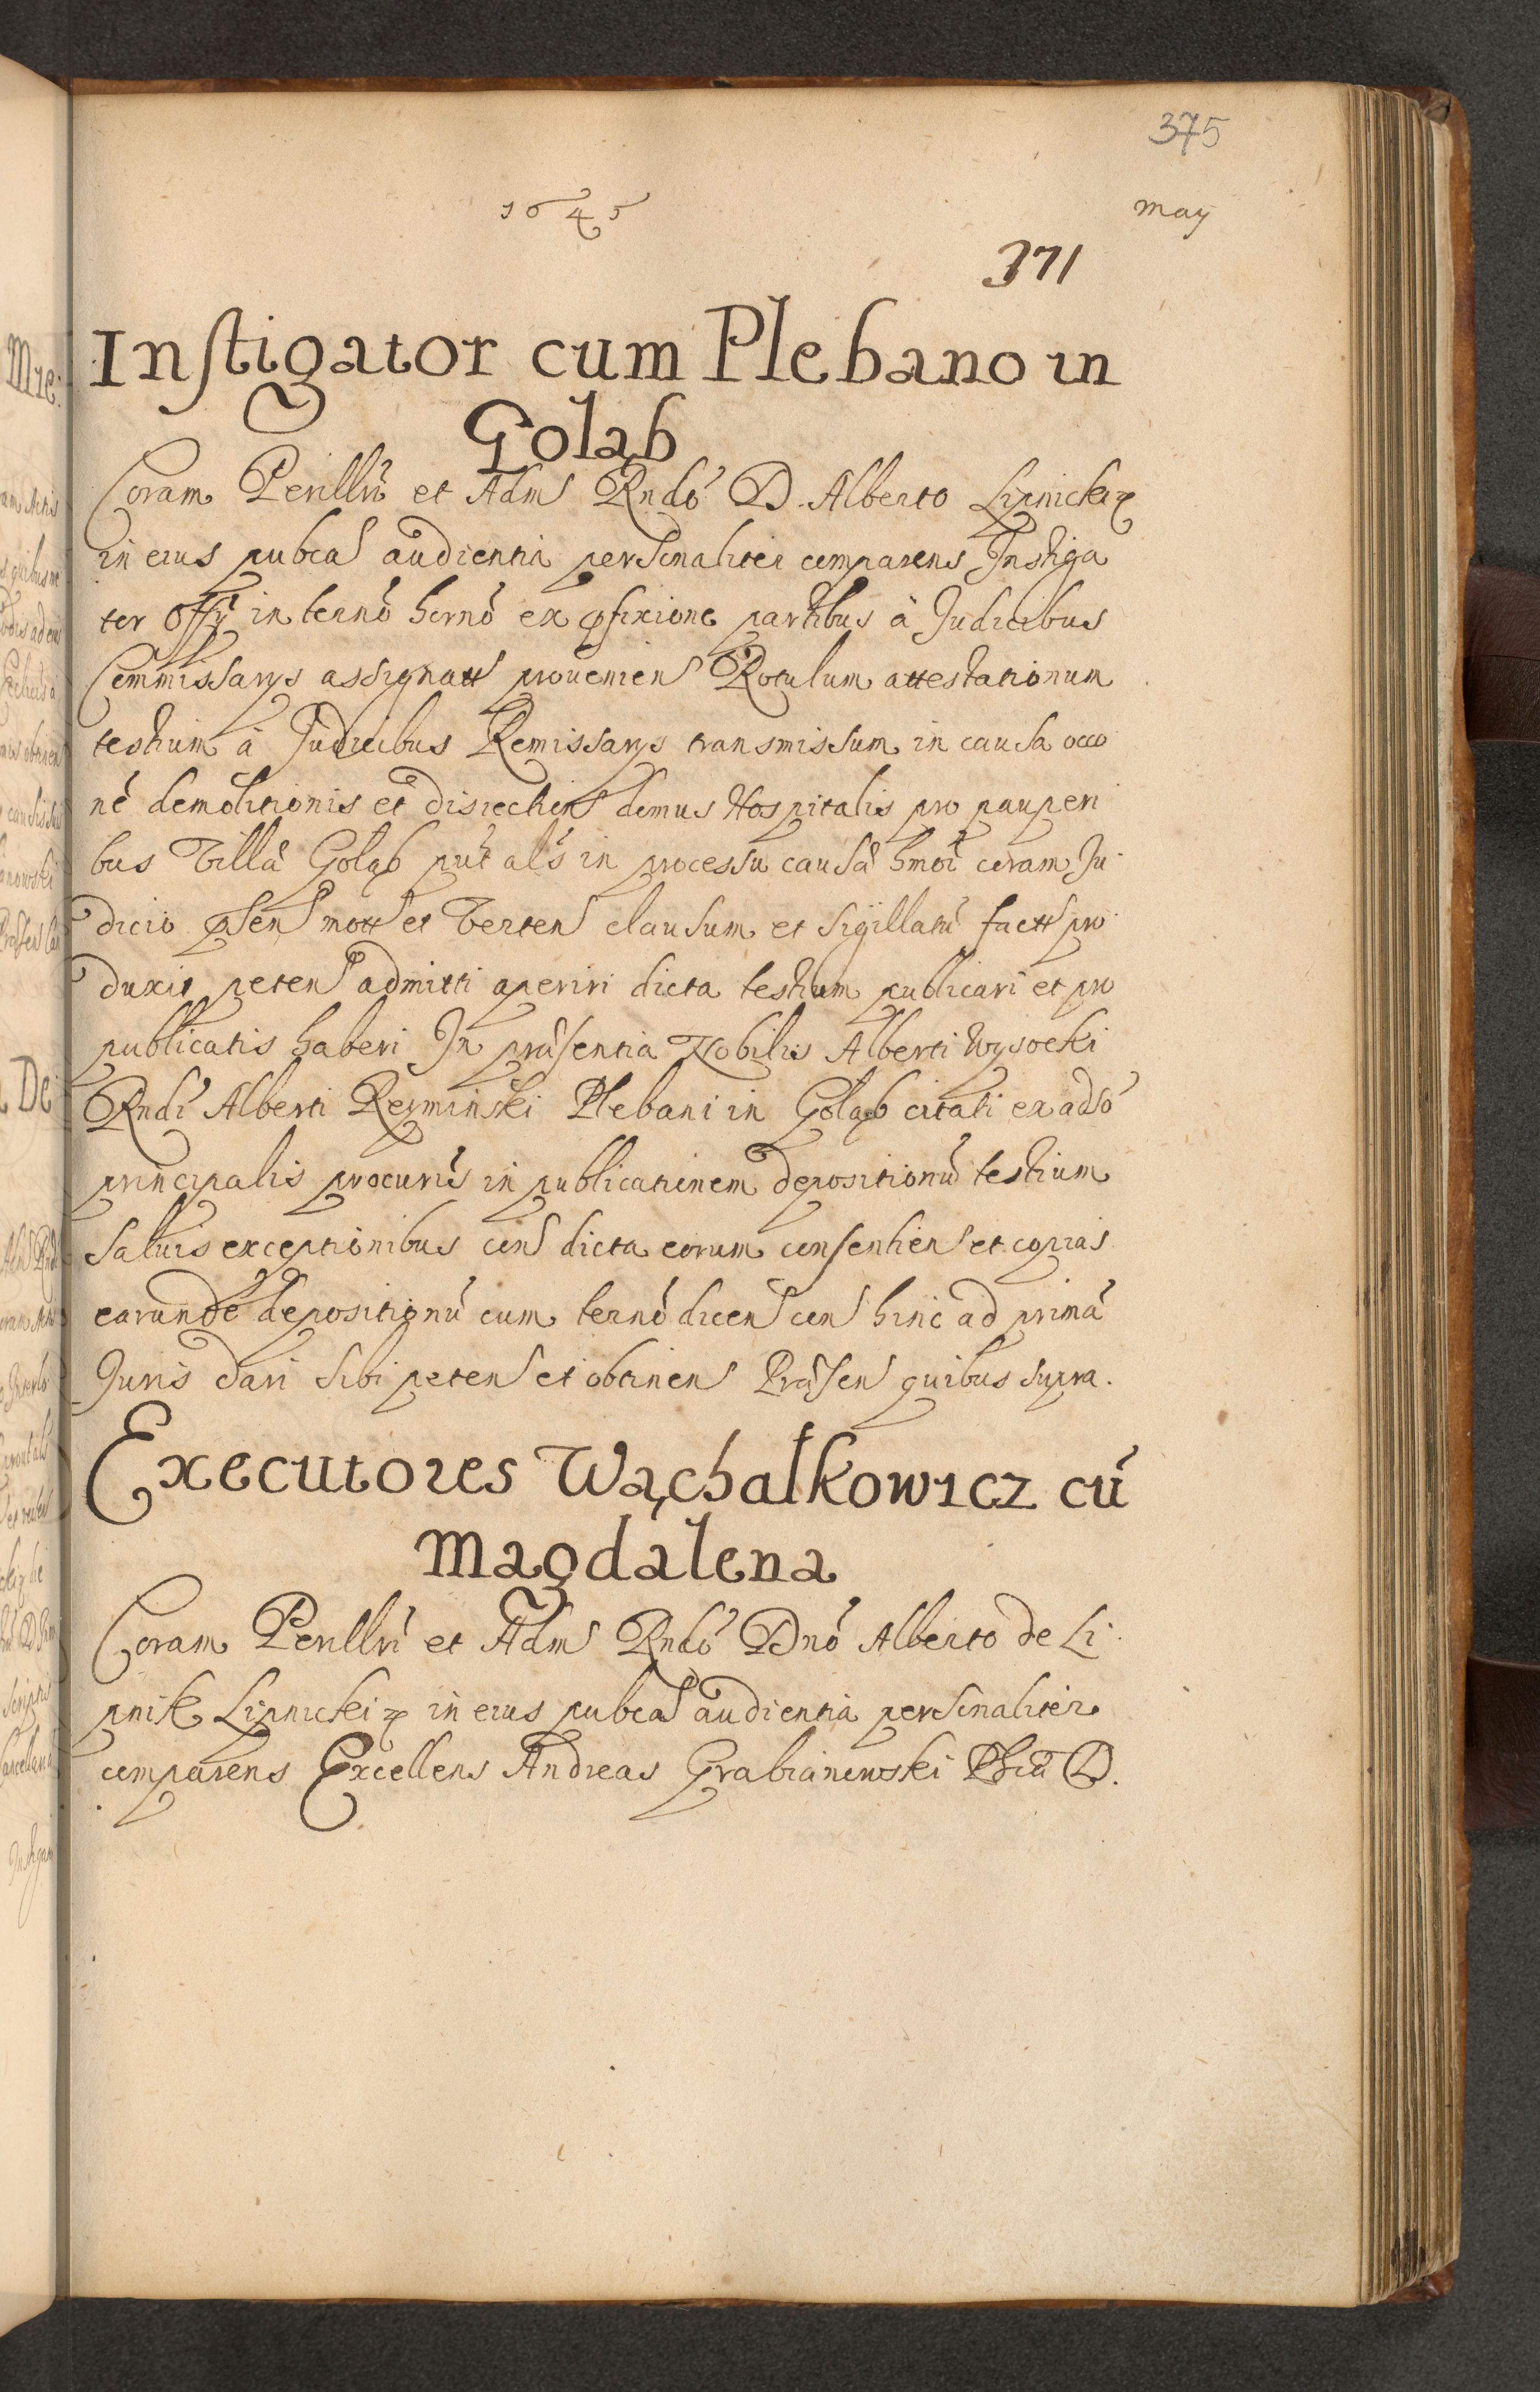 375
1645
May
371
Instigator cum Plebano in
Gołąb
Coram Perillri et Adm Rndo D. Alberto Lipnicki
in eius pubca audientia personaliter comparens Instiga
tor Offij in termo hernó ex pfixione partibus à Judicibus
Commissarys assignatt proueniens Rotulum attestationum
testium à Judicibus Remissarys transmissum in causa occo
ne demolitionis et disiection domus Hospitalis pro pauperi
bus Villa Gołąb put als in processu causa hmoi coram Ju
dicio psen mott et Verten clausum et sigillatu factt pro
duxit peten admitti aperiri dicta testium publicari et pro
publicatis haberi In præsentia Nobilis Alberti Wysocki
Rndi Alberti Reyminski Plebani in Gołąb citati ex adso
principalis procuris in publicationem depositionu testium
saluis exceptionibus con dicta eorum consentien et copias
earunde depositionu cum termo dicen con hinc ad prima
Juris dari sibi peten et obtinen Præsen quibus supra.
Executores Wąchałkowicz cu
Magdalena
Coram Perillri et Adm Rndo Dno Alberto de Li
pnik Lipnicki in eius pubca audientia personaliter
comparens Excellens Andreas Grabianowski Phia D.